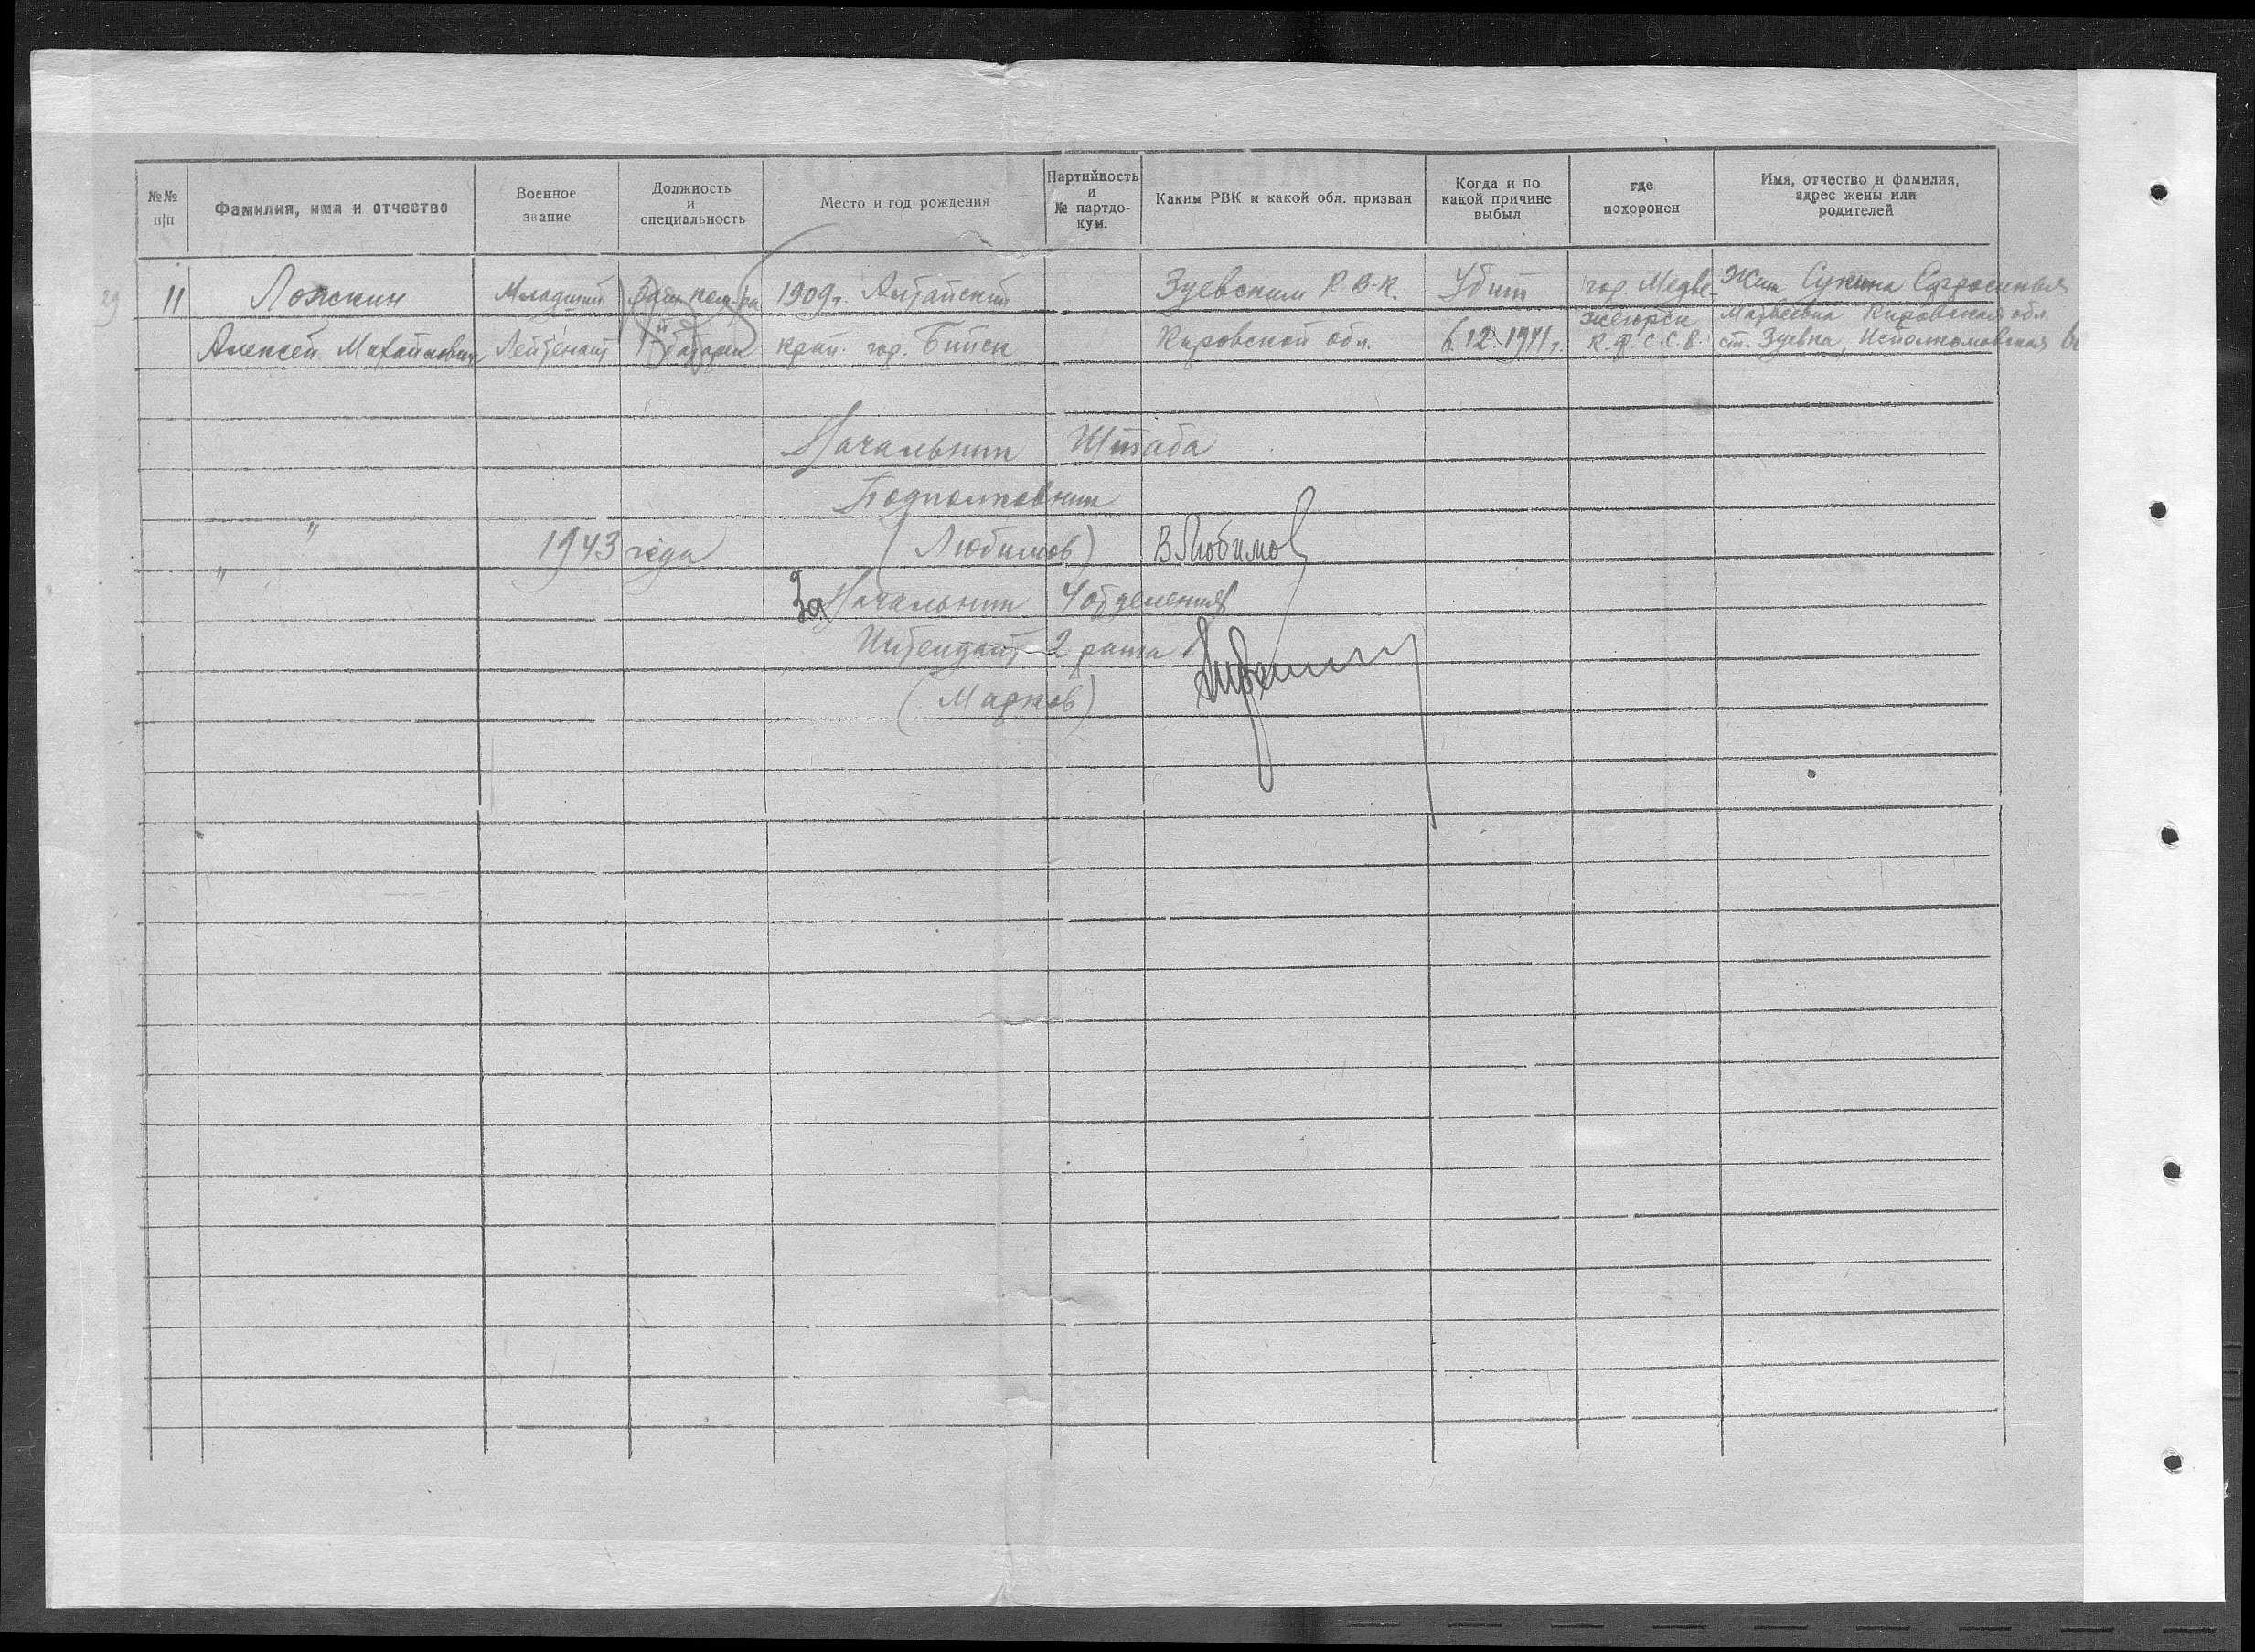 №№ п/п
Фамилия, имя и отчество
Военное звание
Должность и специальность
Место и год рождения
Партийность и № партдокум.
Каким РВК и какой обл. призван
Когда и по какой причине выбыл
где похоронен
Имя, отчество и фамилия, адрес жены или родителей
29
11
Ложкин
Алексей Михайлович
Младший
Лейтенант
Зам. ком-ра
батареи
1909 г. Алтайский
край. гор. Бийск
Зуевским Р.В.К.
Кировской обл.
Убит
6.12.1941 г.
гор. Медве-
жегорск
К.Ф.С.С.Р.
Жена Ефросинья
Матвеевна Кировская обл.
ст. Зуевка, Исполкомовская
Начальник Штаба
Подполковник
" " 1943 года
(Любимов) В.Любимов
За Начальник 4 отделения
Интендант 2 ранга
(Марков)